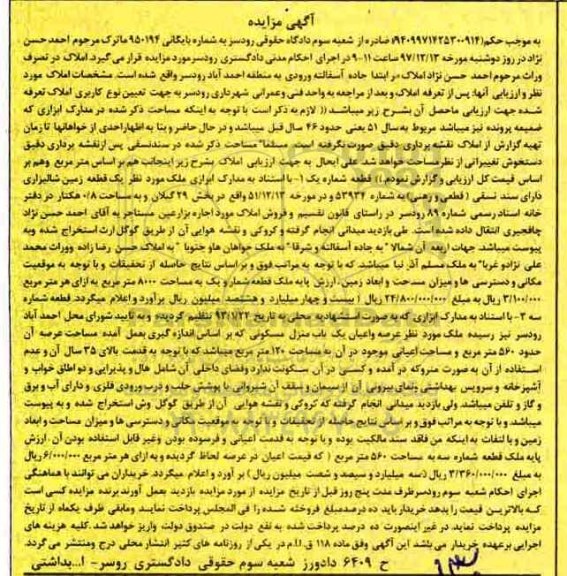 آگهی مزایده
به موجب حکم(۹۴۰۹۹۷۱۴۲۵۳۰۰۹۱۴) صادره از شعبه سوم دادگاه حقوقی رودسر به شماره بایگانی ۹۵۰۱۹۴ ماترک مرحوم احمد حسن
نژاد در روز دوشنبه مورخه ۹۷/۱۲/۱۳ ساعت ۱۱-۹ در اجرای احکام مدنی دادگستری رودسر مورد مزایده قرار می گیرد. املاک در تصرف
وراث مرحوم احمد حسن نژاد املاک در ابتدا جاده آسفالته ورودی به منطقه احمد آباد رودسر واقع شده است. مشخصات املاک مورد
نظر و ارزیابی آنها: پس از تعرفه املاک و بعد از مراجعه به واحد فنی وعمرانی شهرداری رودسر به جهت تعیین نوع کاربری املاک تعرفه
شده جهت ارزیابی ماحصل آن بشرح زیر میباشد (( لازم به ذکر است با توجه به اینکه مساحت ذکر شده در مدارک ابرازی که
ضمیمه پرونده نیز میباشد مربوط به سال ۵۱ یعنی حدود ۴۶ سال قبل میباشد و در حال حاضر و بنا به اظهار احدی از خواهانها تا زمان
تهیه گزارش از املاک نقشه برداری دقیق صورت نگرفته است. مسلما" مساحت ذکر شده در سند نسقی پس از نقشه برداری دقیق
دستخوش تغییراتی از نظر مساحت خواهد شد. علی ایحال به جهت ارزیابی املاک بشرح زیر اینجانب هم بر اساس متر مربع وهم بر
اساس قیمت کل ارزیابی و گزارش نمودم)): قطعه شماره یک ۱- با استناد به مدارک ابرازی ملک مورد نظر یک قطعه زمین شالیزاری
دارای سند نسقی ( قطعی زارعی) به شماره ۵۳۹۳۴ و در مورخه ۵۱/۱۲/۱۲ واقع در بخش ۲۹ گیلان و به مساحت ۰/۸ هکتار در دفتر
خانه اسناد رسمی شماره ۸۹ رودسر در راستای قانون تقسیم و فروش املاک مورد اجاره بزارعین مستاجر به آقای احمد حسن نژاد
چافجیری انتقال داده شده است. طی بازدید میدانی انجام گرفته و کروکی و نقشه هوایی آن از طریق گوگل ارث استخراج شده وبه
پیوست میباشد. جهات اربعه آن شمالا" به جاده آسفالته و شرقا" به ملک خواهان هاو جنوبا " به املاک حسن رضا زاده ووراث محمد
علی نژادو غربا" به ملک مسلم آذر نیا میباشد. که با توجه به مراتب فوق و بر اساس نتایج حاصله از تحقیقات و با توجه به موقعیت
مکانی و دسترسی ها و میزان مساحت و ابعاد زمین، ارزش پایه ملک قطعه شمار و یک به مساحت ۸۰۰۰ متر مربع به ازای هر متر مربع
۳/۱۰۰/۰۰۰ ریال به مبلغ ۲۴/۸۰۰/۰۰۰/۰۰۰ ریال ( بیست و چهار میلیارد و هشتصد میلیون ریال برآورد و اعلام میگردد. قطعه شماره
سه ۳- با استناد به مدارک ابرازی که به صورت استشهادیه محلی به تاریخ ۹۳/۱/۲۲ تنظیم گردیده و به تایید شورای محل احمد آباد
رودسر نیز رسیده ملک مورد نظر عرصه واعیان یک باب منزل مسکونی که بر اساس اندازه گیری بعمل آمده مساحت عرصه آن
حدود ۵۶۰ متر مربع و مساحت اعیانی موجود در آن به مساحت ۱۲۰ متر مربع میباشد که با توجه به قدمت بالای ۳۵ سال آن و عدم
استفاده از آن به صورت متروکه در آمده و کسی در آن سکونت ندارد وفضای داخلی آن شامل هال و پذیرایی و دو اطاق خواب و
آشپزخانه و سرویس بهداشتی ونمای بیرونی آن از سیمان و سقف آن شیروانی با پوشش حلب و درب ورودی فلزی و دارای آب و برق
و گاز و تلفن میباشد. ولی بازدید میدانی انجام گرفته که کروکی و نقشه هوایی آن از طریق گوگل وش استخراج شده و به پیوست
میباشد. و با توجه به مراتب فوق و بر اساس نتایج حاصله از تحقیقات و با توجه به موقعیت مکانی و دسترسی ها و میزان مساحت و ابعاد
زمین و با لتفات به اینکه من فاقد سند مالکیت بوده و با توجه به قدمت اعیانی و فرسوده بودن وغیر قابل استفاده بودن آن. ارزش
پایه ملک قطعه شماره سه به مساحت ۵۶۰ متر مربع ( که قیمت اعیان در عرصه لحاظ گردیده و به ازای هر متر مربع ۶/۰۰۰/۰۰۰ ریال
به مبلغ ۳/۳۶۰/۰۰۰/۰۰۰ ریال (سه میلیارد و سیصد و شصت میلیون ریال) بر آورد و اعلام میگردد. خریداران می توانند با هماهنگی
اجرای احکام شعبه سوم رودسر ظرف مدت پنج روز قبل از تاریخ مزایده از مورد مزایده بازدید بعمل آورند برنده مزایده کسی است
که بالاترین قیمت را بدهد خریدار باید ده درصد مبلغ فروخته شده را فی المجلس پرداخت نماید ومابقی ظرف یکماه از تاریخ
مزایده پرداخت نماید در غیر اینصورت ده درصد پرداخت شده به نفع دولت در صندوق دولت واریز خواهد شد. کلیه هزینه های
اجرایی برعهده خریدار می باشد این آگهی وفق ماده ۱۱۸ ق.ا.م در یکی از روزنامه های کثیر انتشار محلی درج ومنتشر می گردد.
ح ۶۴۰۹ دادورز شعبه سوم حقوقی دادگستری روسر- ا...بداشتی